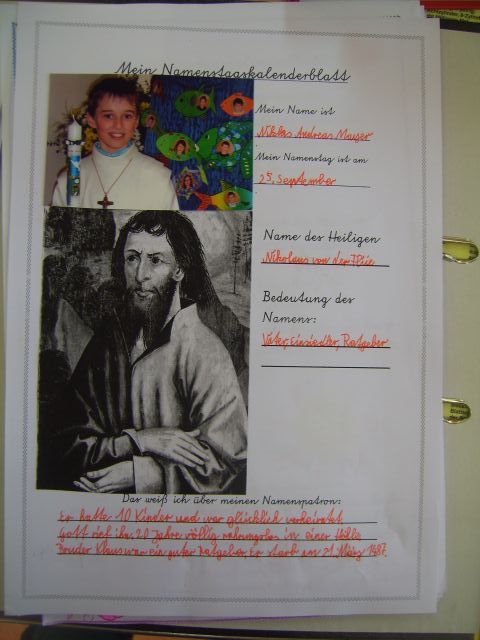 Mein Namenstagskalenderblatt
Mein Name ist
Niklas Andreas Mauser
Mein Namenstag ist am
25. September
Name des Heiligen
Nikolaus von der Flüe
Bedeutung des
Namens:
Vater, Einsiedler, Ratgeber
Das weiß ich über meinen Namenspatron:
Er hatte 10 Kinder und war glücklich verheiratet.
Gott rief ihn 20 Jahre völlig nahrungslos in einer Hölle
Bruder Klaus war ein guter Ratgeber. Er starb am 21. März 1487.